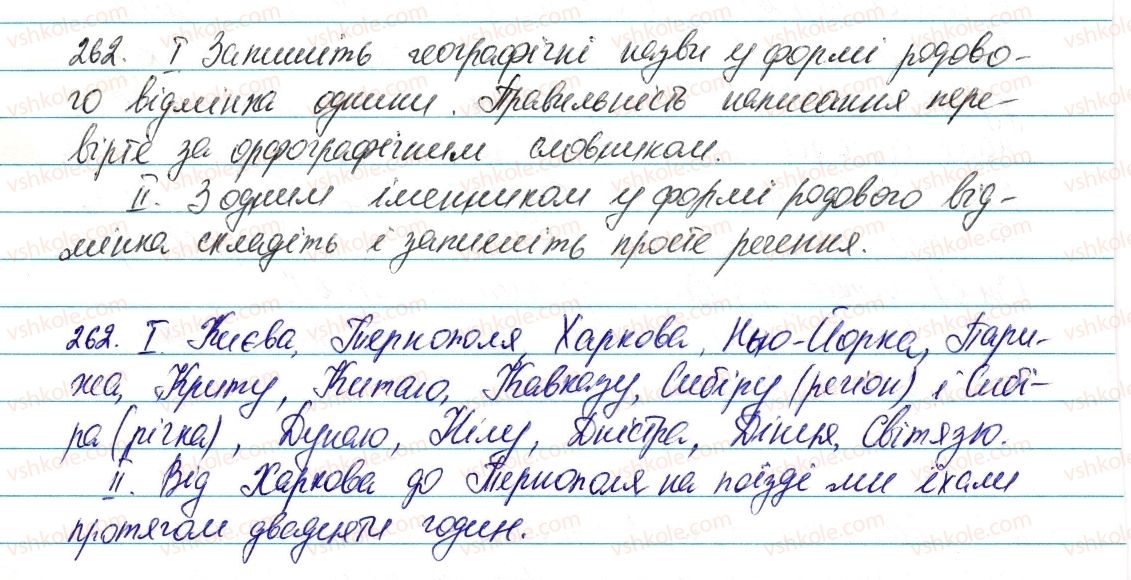 262. I Запишіть географічні назви у формі родово-
го відмінка однини. Правильність написання пере-
вірте за орфографічним словником.
II. З одним іменником у формі родового від-
мінка складіть і запишіть просте речення.
262. I. Києва, Тернополя, Харкова, Нью-Йорка, Пари-
жа, Криту, Китаю, Кавказу, Сибіру (регіон) і Сибі-
ра (річка), Дунаю, Нілу, Дністра, Дніпра, Світязю.
II. Від Харкова до Тернополя на поїзді ми їхали
протягом двадцяти годин.